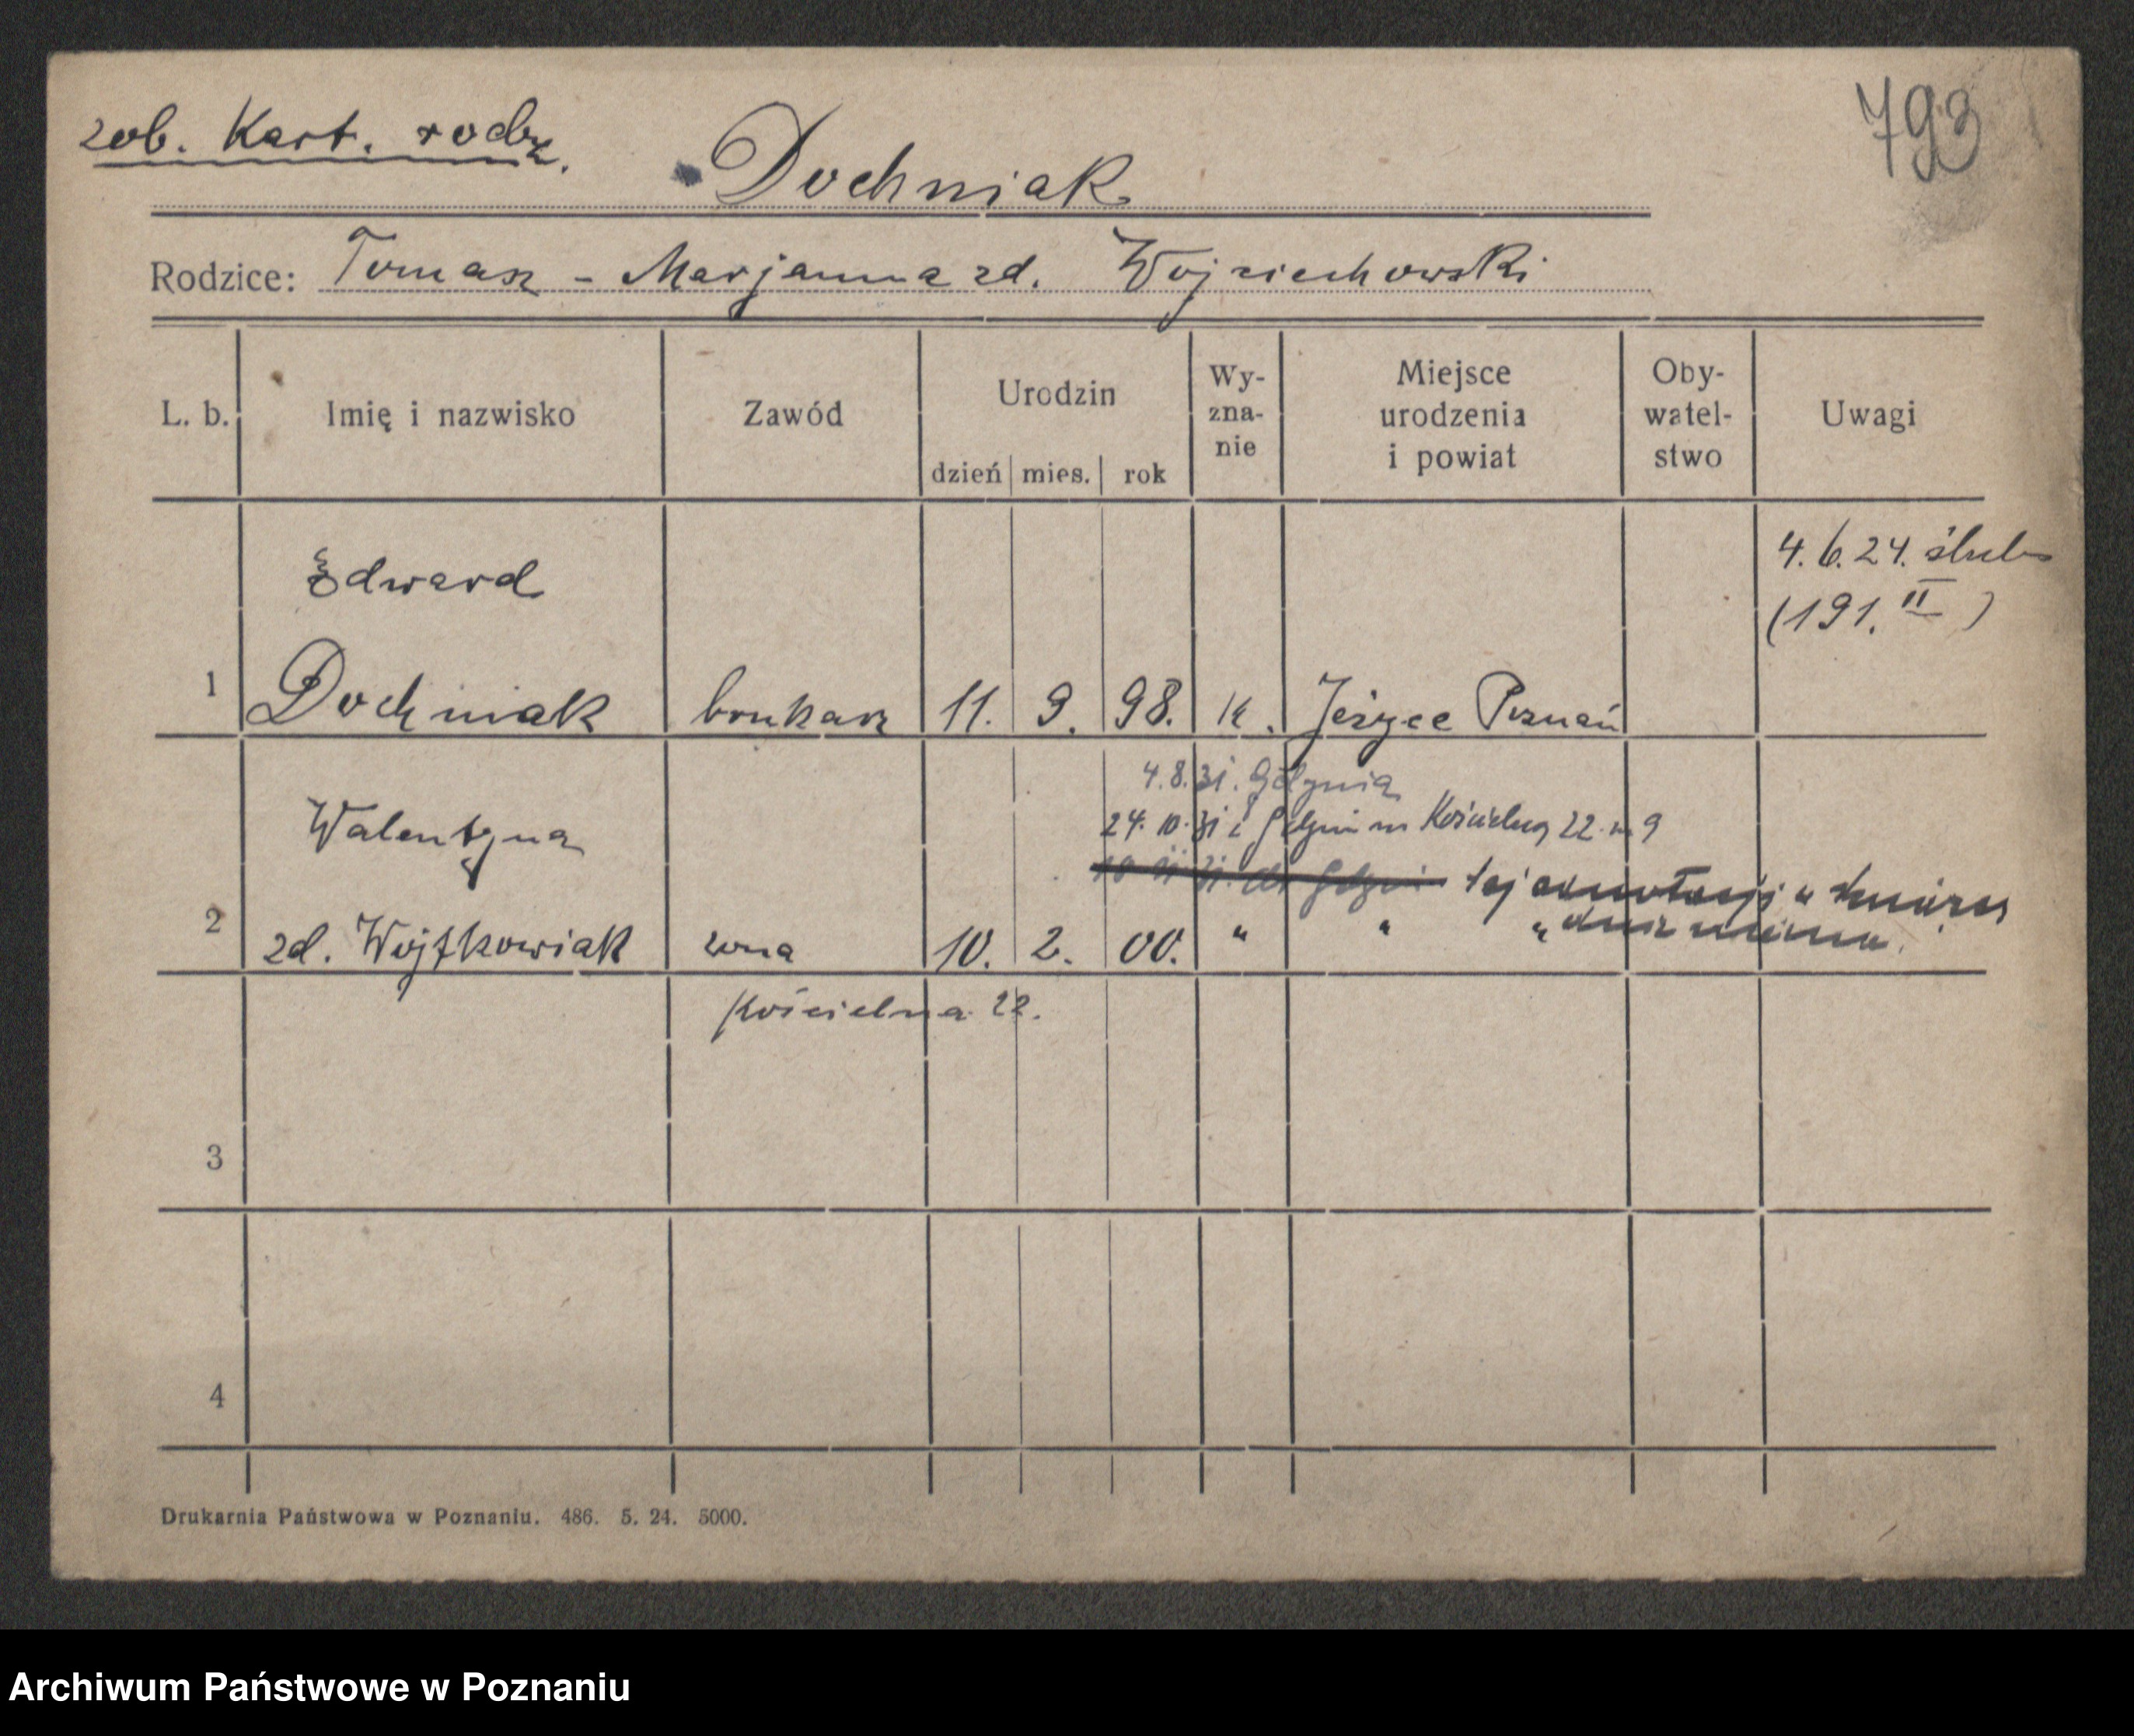 zob. Kart. rodz.
793
Dochniak
Rodzice: Tomasz - Marjanna zd. Wojciechowski
L. b.
Imię i nazwisko
Zawód
Urodzin
dzień mies. rok
Wy-
zna-
nie
Miejsce
urodzenia
i powiat
Oby-
watel-
stwo
Uwagi
4. 6. 24. ślub
(191. II)
Edward
1 Dochniak brukarz 11. 9. 98. k. Jeżyce Poznań
4.8.31. Gdynia
24. 10. 31 z Gdyni Kościelna 22 m 9
Walentyna
tej
2 zd. Wojtkowiak żona 10. 2. 00. " " "
Kościelna 22.
3
4
Drukarnia Państwowa w Poznaniu. 486. 5. 24. 5000.
Archiwum Państwowe w Poznaniu